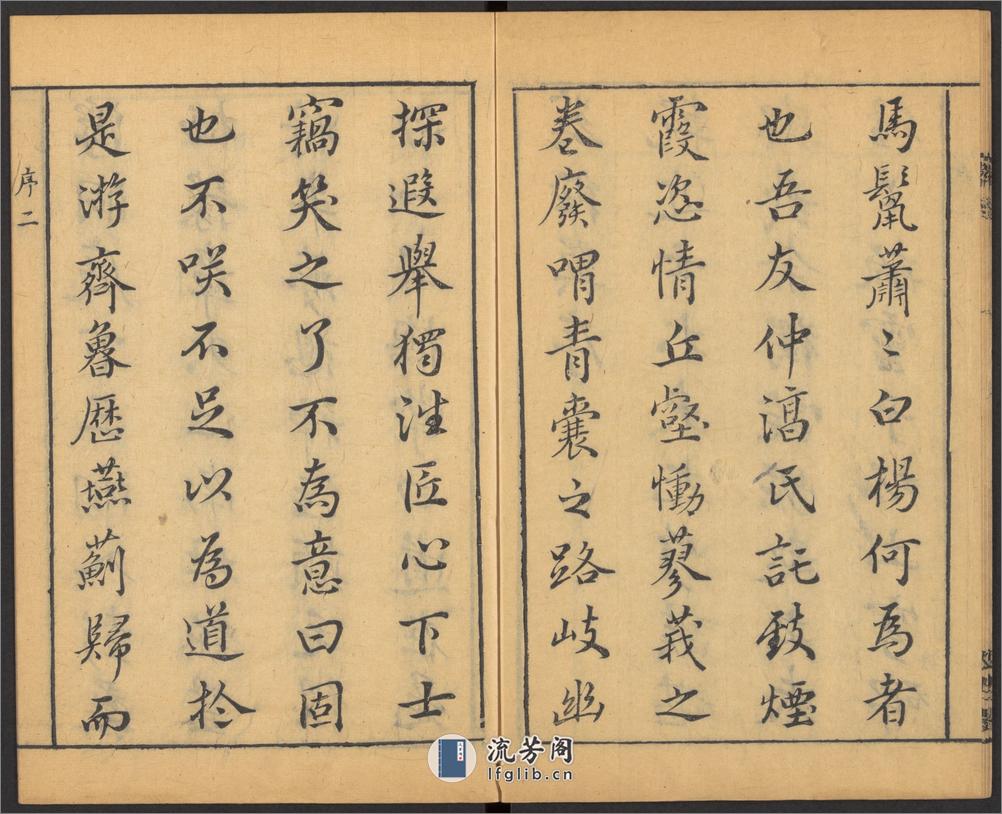 馬鬣蕭〻白楊何爲者
也吾友仲滈氏託致煙
霞恣情丘壑慟蓼莪之
巻廢喟青囊之路岐幽
探遐舉獨注匠心下士
竊笑之了不為意曰固
也不咲不足以為道扵
是游齊魯歷燕薊歸而
序二
流芳阁
lfglib.cn